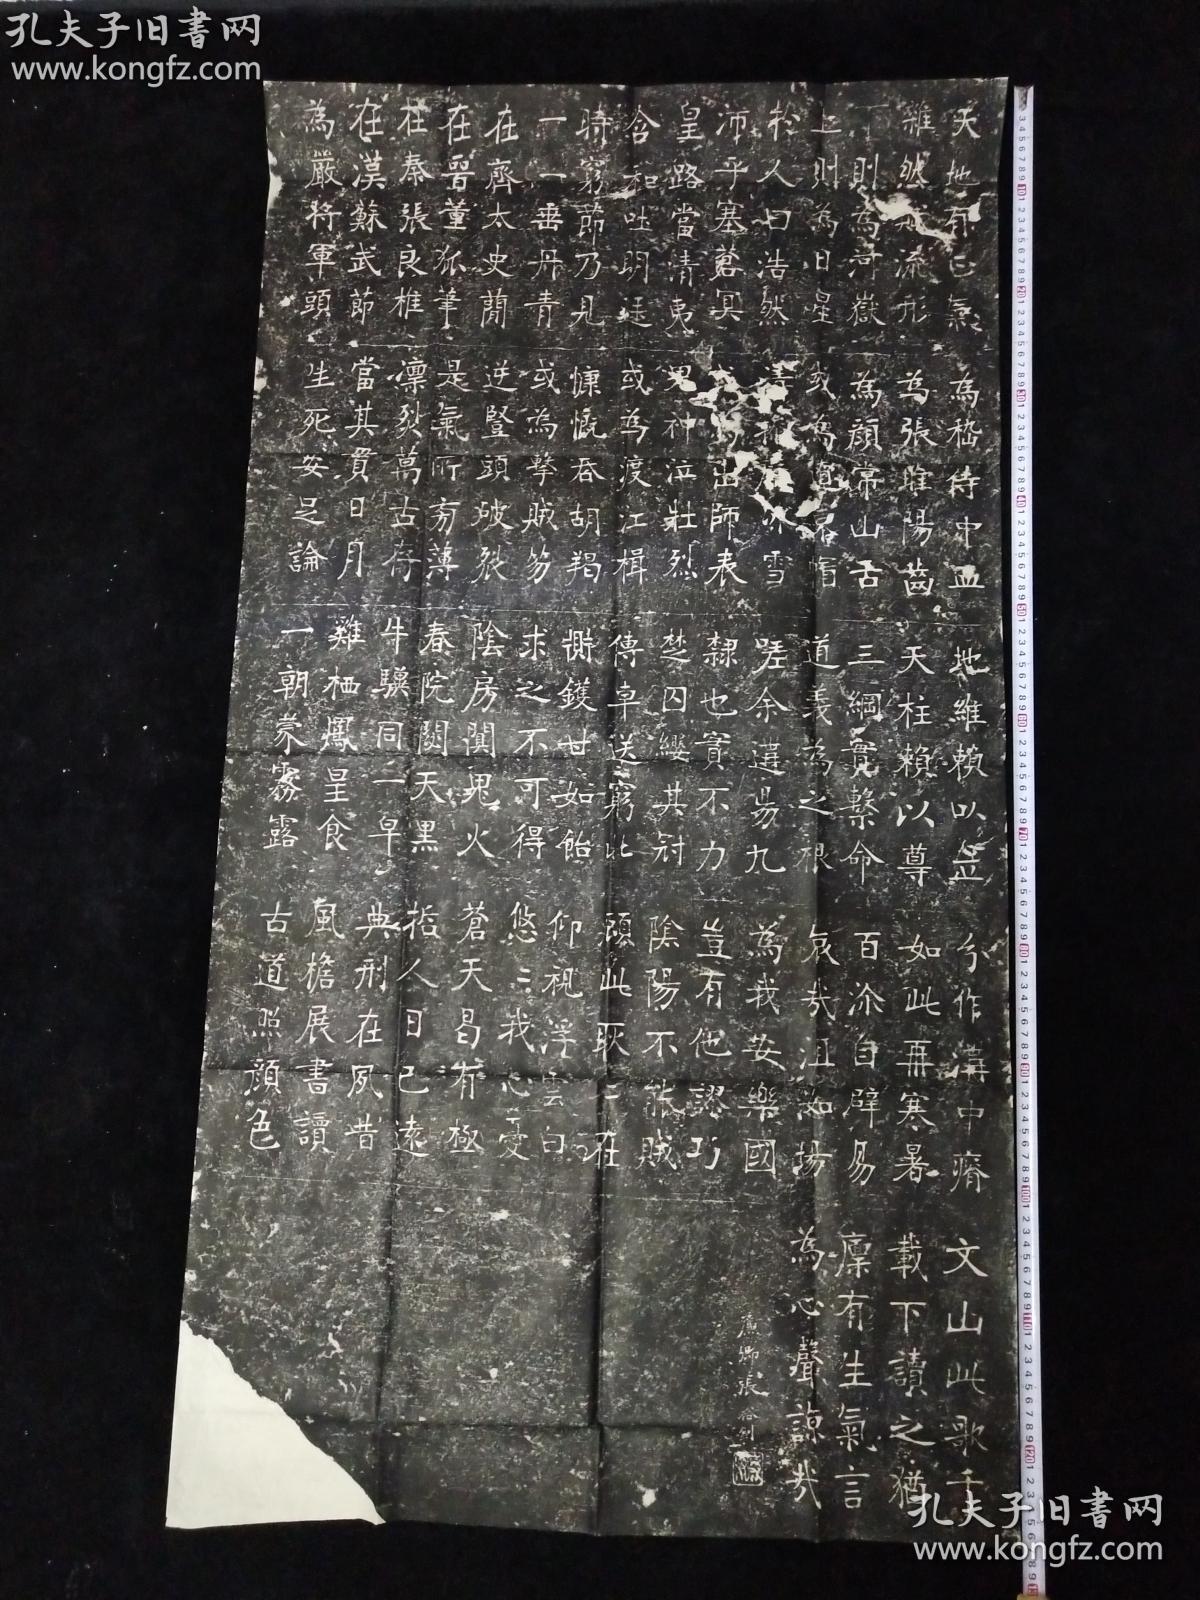 孔夫子旧書网
www.kongfz.com
天地有正氣
雜然賦流形
下則為河嶽
上則為日星
於人曰浩然
沛乎塞蒼冥
皇路當清夷
含和吐明廷
時窮節乃見
一一垂丹青
在齊太史簡
在晉董狐筆
在秦張良椎
在漢蘇武節
為嚴將軍頭
為嵇侍中血
為張睢陽齒
為顏常山舌
或為遼東帽
清操厲冰雪
或為出師表
鬼神泣壯烈
或為渡江楫
慷慨吞胡羯
或為擊賊笏
逆豎頭破裂
是氣所旁薄
凛烈萬古存
當其貫日月
生死安足論
地維賴以立
天柱賴以尊
三綱實繫命
道義為之根
嗟余遘昜九
隸也實不力
楚囚纓其冠
傳車送窮北
鼎鑊甘如飴
求之不可得
陰房闃鬼火
春院閟天黑
牛驥同一皁
雞栖鳳皇食
一朝蒙霧露
分作溝中瘠
如此再寒暑
百沴自辟易
哀哉沮洳場
為我安樂國
豈有他謬巧
陰陽不能賊
顧此耿二在
仰視浮雲白
悠二我心憂
蒼天曷有極
哲人日已遠
典刑在夙昔
風檐展書讀
古道照顏色
文山此歌千
載下讀之猶
凜有生氣言
為心聲諒哉
廉卿張裕釗
孔夫子旧書网
www.kongfz.com